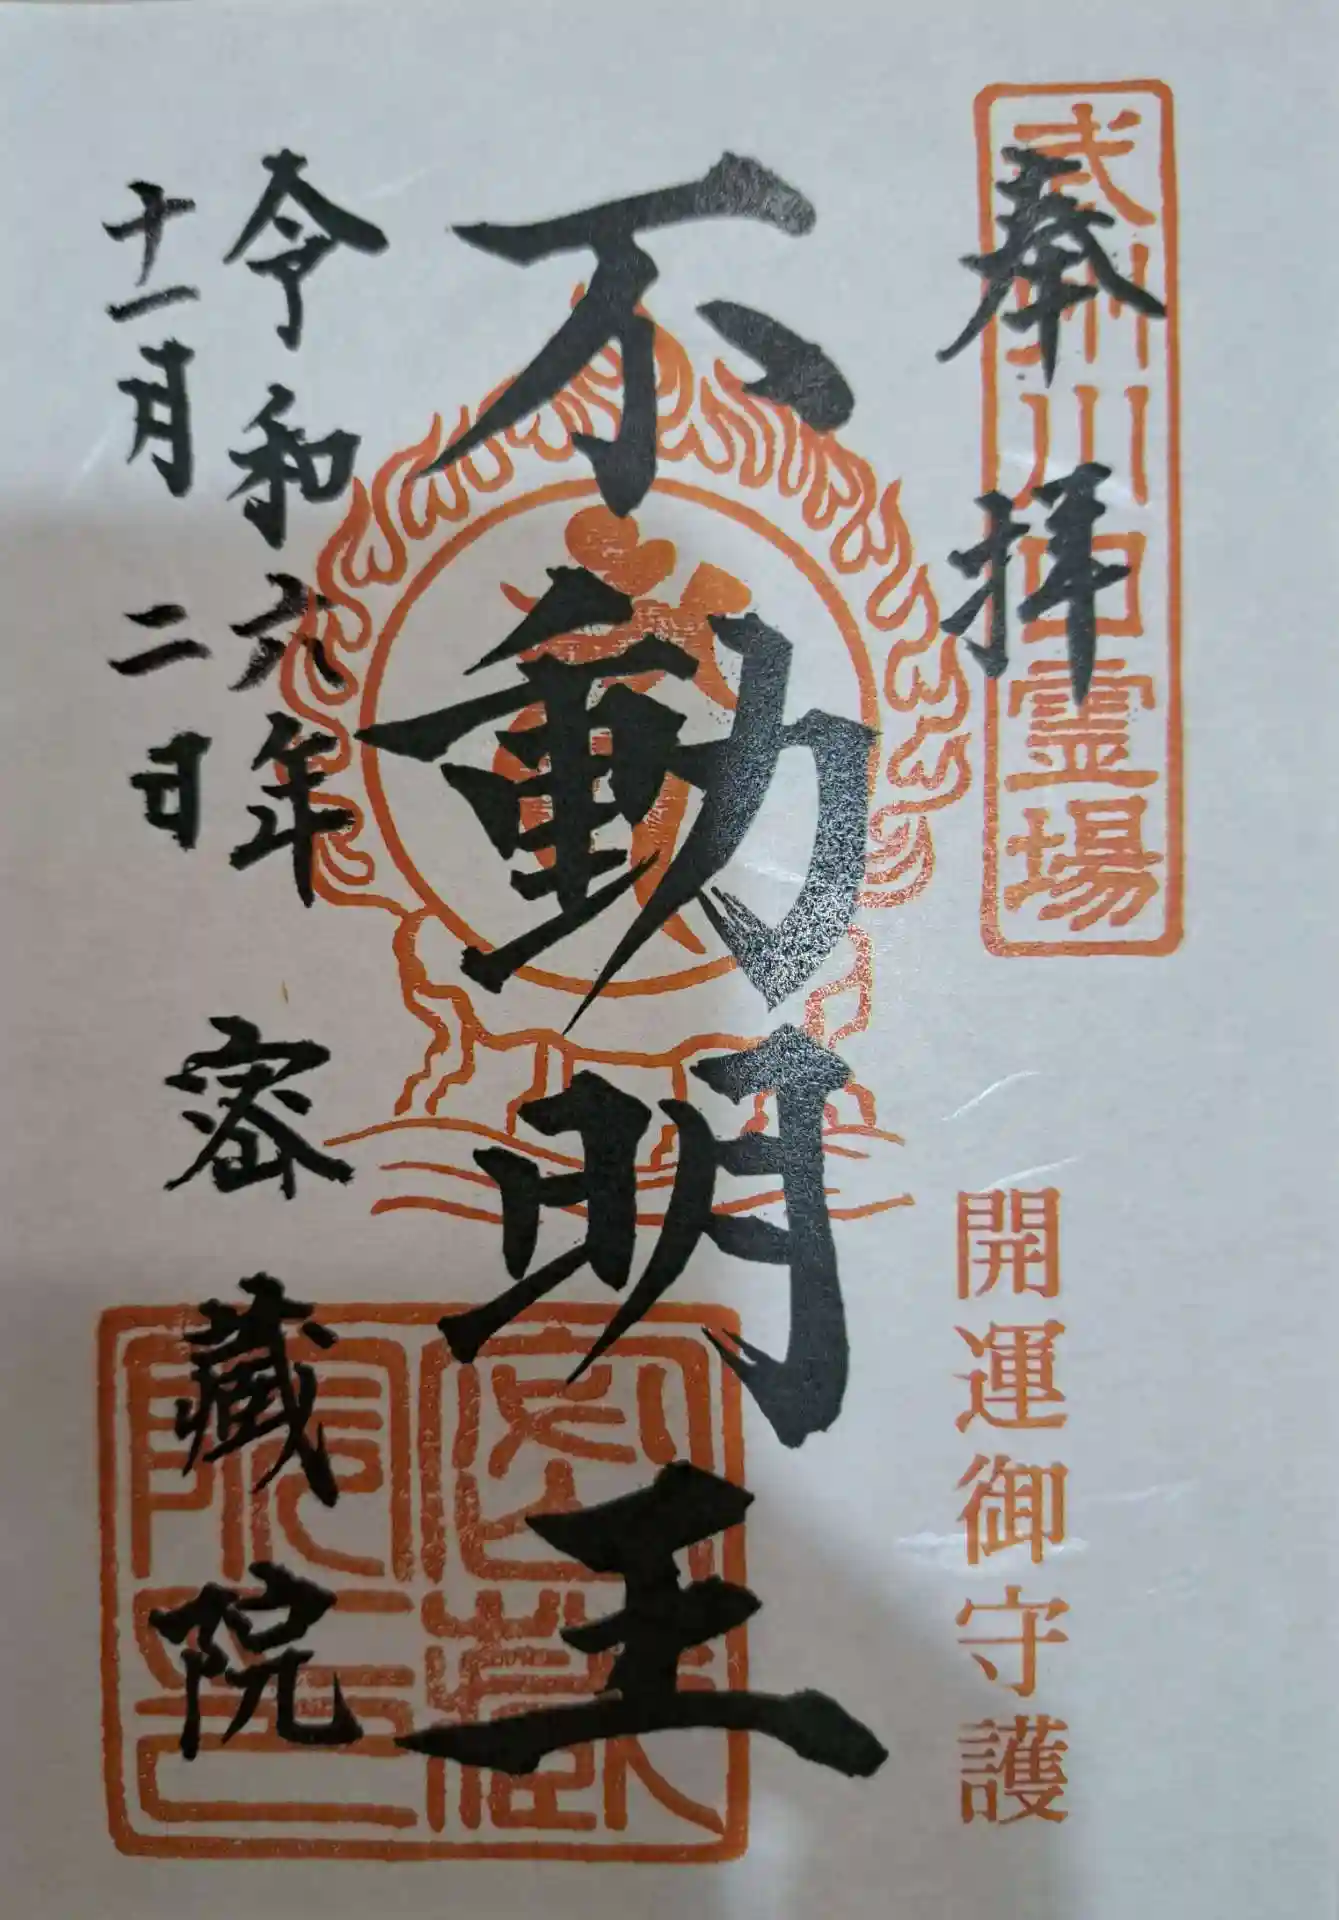 奉拝
武州川口霊場
開運御守護
不動明王
令和六年
十一月二日
密蔵院
密蔵院印